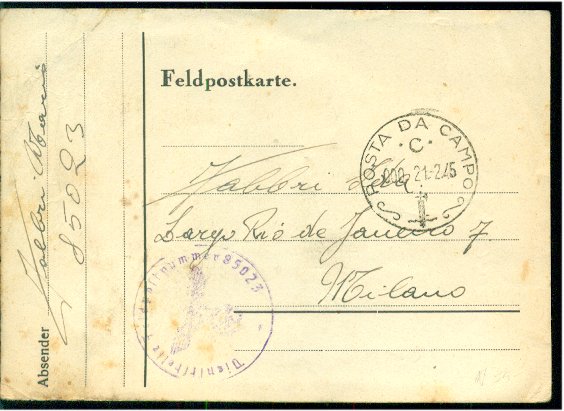 Feldpostkarte.
Fabbri
Largo Rio de Janeiro 7
Milano
POSTA DA CAMPO
C
21.2.45
Dienststelle Feldpostnummer 85023
Absender
Fabbri
85023